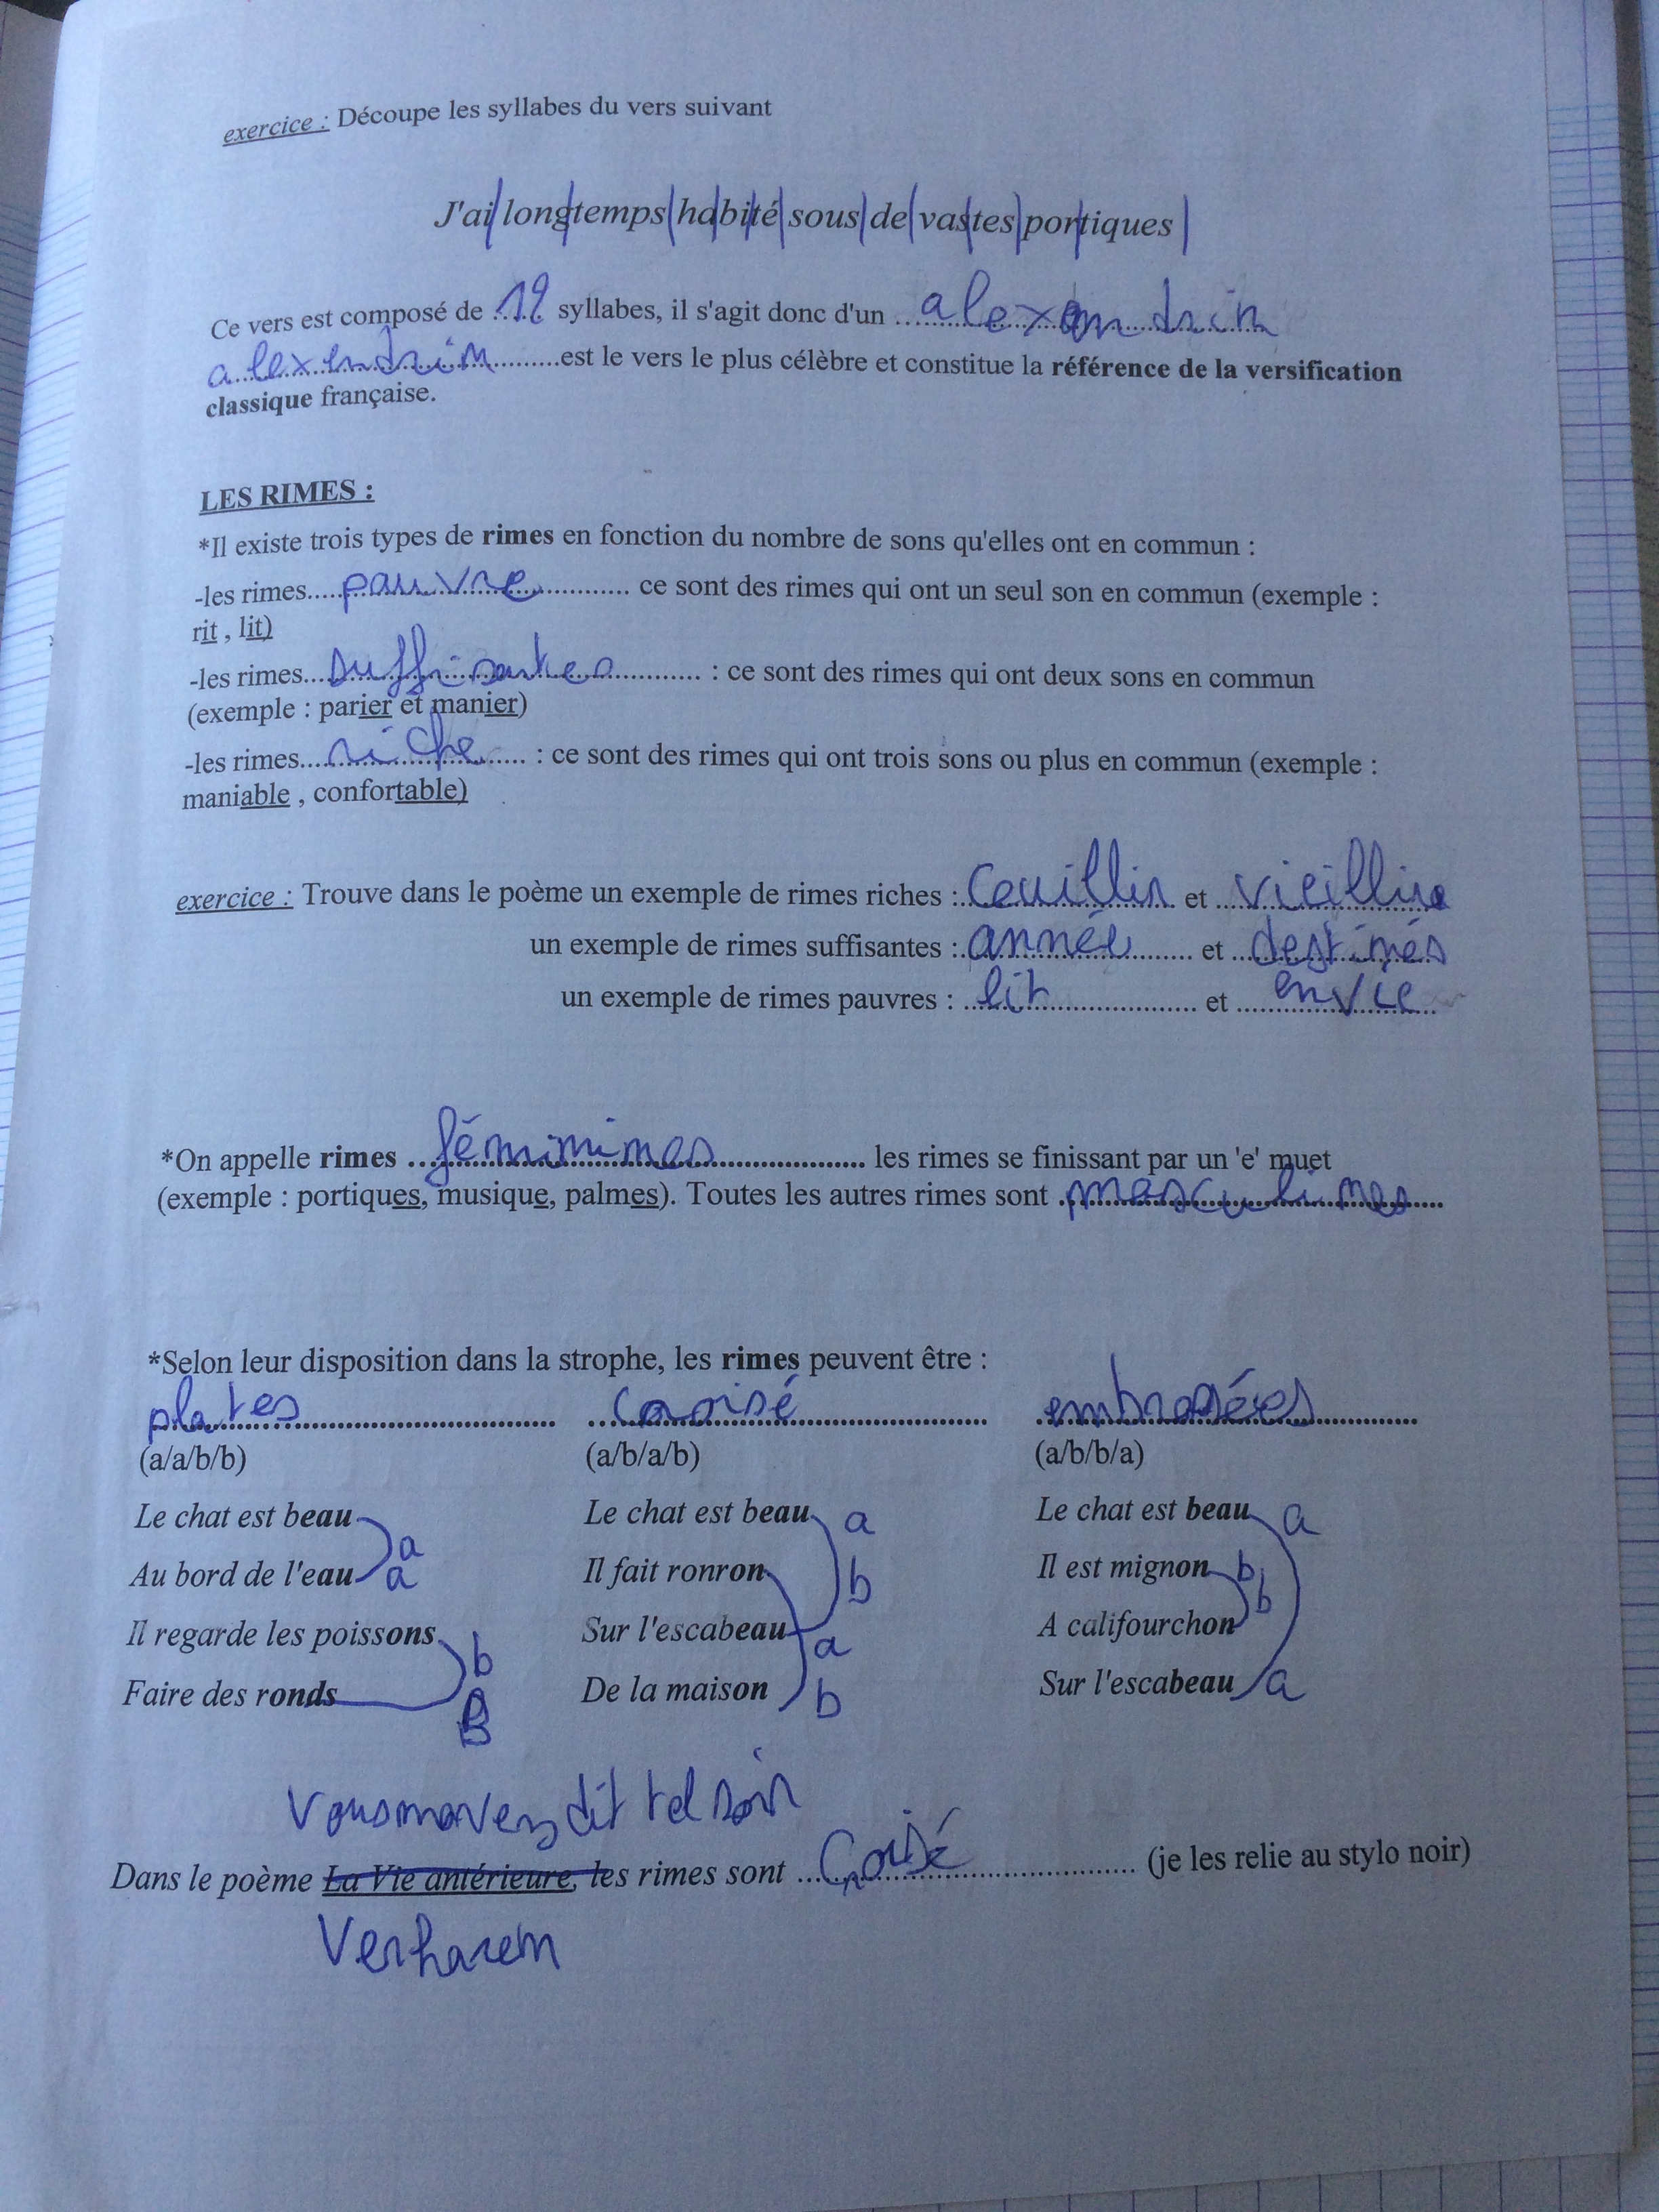 exercice : Découpe les syllabes du vers suivant
J'ai/longtemps/habité/sous/de/vastes/portiques/
Ce vers est composé de 12 syllabes, il s'agit donc d'un alexandrin
alexendrin est le vers le plus célèbre et constitue la référence de la versification
classique française.
LES RIMES :
*Il existe trois types de rimes en fonction du nombre de sons qu'elles ont en commun :
-les rimes pauvre ce sont des rimes qui ont un seul son en commun (exemple :
rit , lit)
-les rimes suffisantes : ce sont des rimes qui ont deux sons en commun
(exemple : parier et manier)
-les rimes riche : ce sont des rimes qui ont trois sons ou plus en commun (exemple :
maniable , confortable)
exercice : Trouve dans le poème un exemple de rimes riches : Ceuillir et vieillir
un exemple de rimes suffisantes : année et destinés
un exemple de rimes pauvres : lit et envie
*On appelle rimes féminines les rimes se finissant par un 'e' muet
(exemple : portiques, musique, palmes). Toutes les autres rimes sont masculines
*Selon leur disposition dans la strophe, les rimes peuvent être :
plates croisé embrasées
(a/a/b/b) (a/b/a/b) (a/b/b/a)
Le chat est beau Le chat est beau a Le chat est beau a
a
Au bord de l'eau a Il fait ronron b Il est mignon b
Il regarde les poissons b Sur l'escabeau a A califourchon b
Faire des ronds B De la maison b Sur l'escabeau a
Vous mavez dit tel soir
Dans le poème La Vie antérieure, les rimes sont Croisé (je les relie au stylo noir)
Verharem